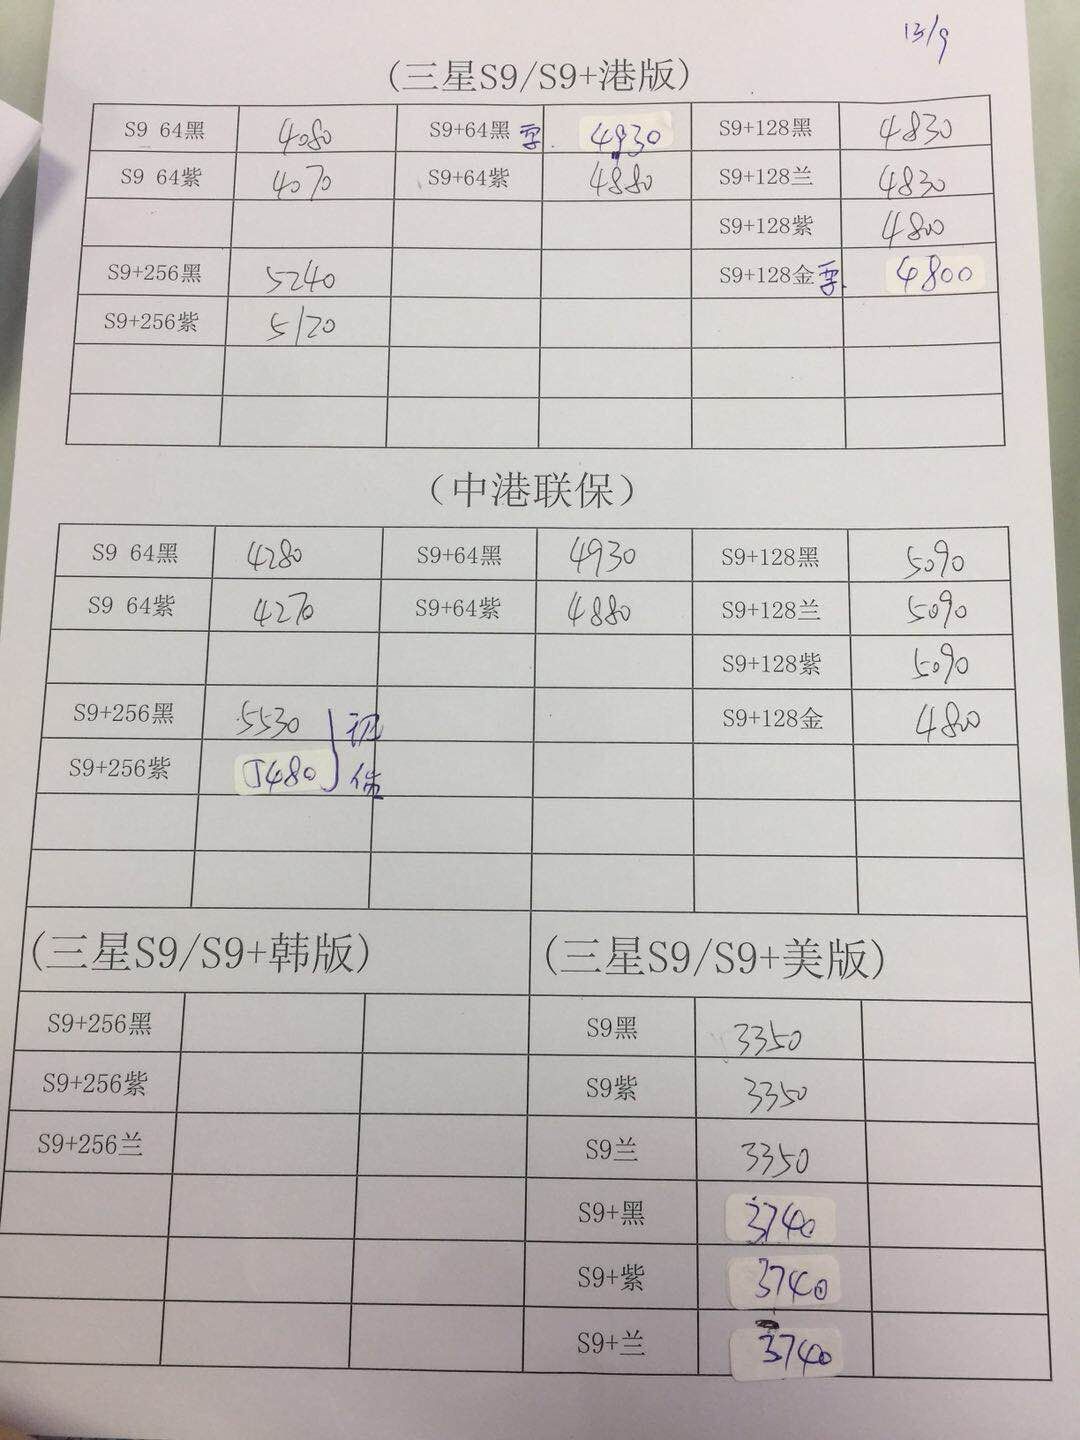 13/9
(三星S9/S9+港版)
S9 64黑 4080 S9+64黑 4930 S9+128黑 4830
S9 64紫 4070 S9+64紫 4880 S9+128兰 4830
S9+128紫 4800
S9+256黑 5240 S9+128金 4800
S9+256紫 5120
(中港联保)
S9 64黑 4280 S9+64黑 4930 S9+128黑 5090
S9 64紫 4270 S9+64紫 4880 S9+128兰 5090
S9+128紫 5090
S9+256黑 5530 S9+128金 4800
S9+256紫 5480
(三星S9/S9+韩版) (三星S9/S9+美版)
S9+256黑 S9黑 3350
S9+256紫 S9紫 3350
S9+256兰 S9兰 3350
S9+黑 3740
S9+紫 3740
S9+兰 3740